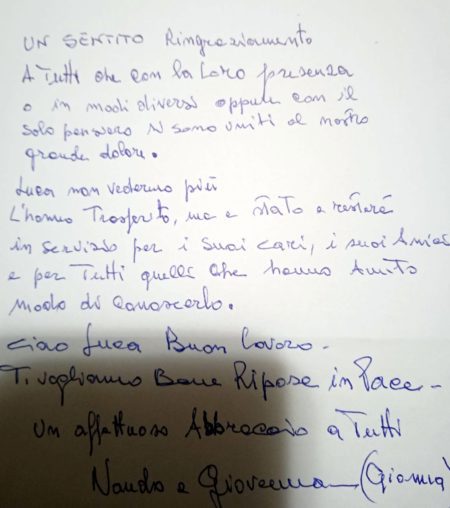 UN SENTITO Ringraziamento
A Tutti che con la Loro presenza
o in modi diversi oppure con il
solo pensiero si sono uniti al nostro
grande dolore.
Luca non vedremo più
L'hanno Trasferito, ma e stato e resterà
in servizio per i suoi cari, i suoi Amici
e per Tutti quelli che hanno Avuto
modo di conoscerlo.
Ciao Luca Buon Lavoro -
Ti vogliamo Bene Riposa in Pace -
Un affettuoso Abbraccio a Tutti
Nando e Giovanna